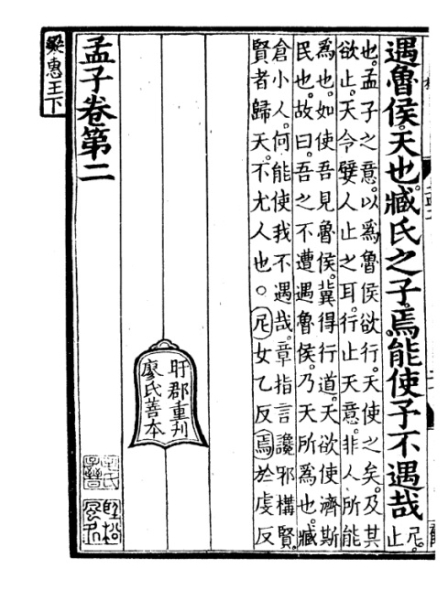 遇魯侯。天也。臧氏之子。焉能使予不遇哉
尼。
止
也。孟子之意。以爲魯侯欲行。天使之矣。及其
欲止。天令嬖人止之耳。行止天意。非人所能
爲也。如使吾見魯侯。冀得行道。天欲使濟斯
民也。故曰。吾之不遭遇魯侯。乃天所爲也。臧
倉小人。何能使我不遇哉。章指言讒邪構賢。
賢者歸天。不尤人也。○尼女乙反焉於虔反
盱郡重刊
廖氏善本
孟子卷第二
梁惠王下